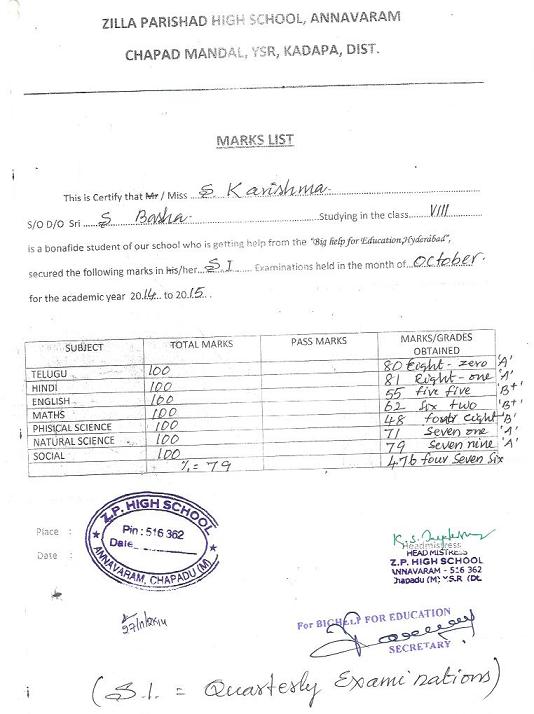 ZILLA PARISHAD HIGH SCHOOL, ANNAVARAM
CHAPAD MANDAL, YSR, KADAPA, DIST.
MARKS LIST
This is Certify that Mr / Miss S. Karishma
S/O D/O Sri S. Basha Studying in the class VIII
is a bonafide student of our school who is getting help from the "Big help for Education, Hyderabad",
secured the following marks in his/her S.I Examinations held in the month of October.
for the academic year 2014 to 2015.
SUBJECT TOTAL MARKS PASS MARKS MARKS/GRADES OBTAINED
TELUGU 100 80 Eight - zero 'A'
HINDI 100 81 Eight - one 'A'
ENGLISH 100 55 five five 'B+'
MATHS 100 62 six two 'B+'
PHISICAL SCIENCE 100 48 four eight 'B'
NATURAL SCIENCE 100 71 seven one 'A'
SOCIAL 100 79 seven nine 'A'
%= 79 476 four seven six
Place :
Date :
Z.P. HIGH SCHOOL
Pin: 516 362
Date
ANNAVARAM, CHAPADU (M)
Headmistress
HEAD MISTRESS
Z.P. HIGH SCHOOL
ANNAVARAM - 516 362
Chapadu (M) Y.S.R (Dt.
27/11/2014
For BIGHELP FOR EDUCATION
SECRETARY
(S.I. = Quarterly Examinations)